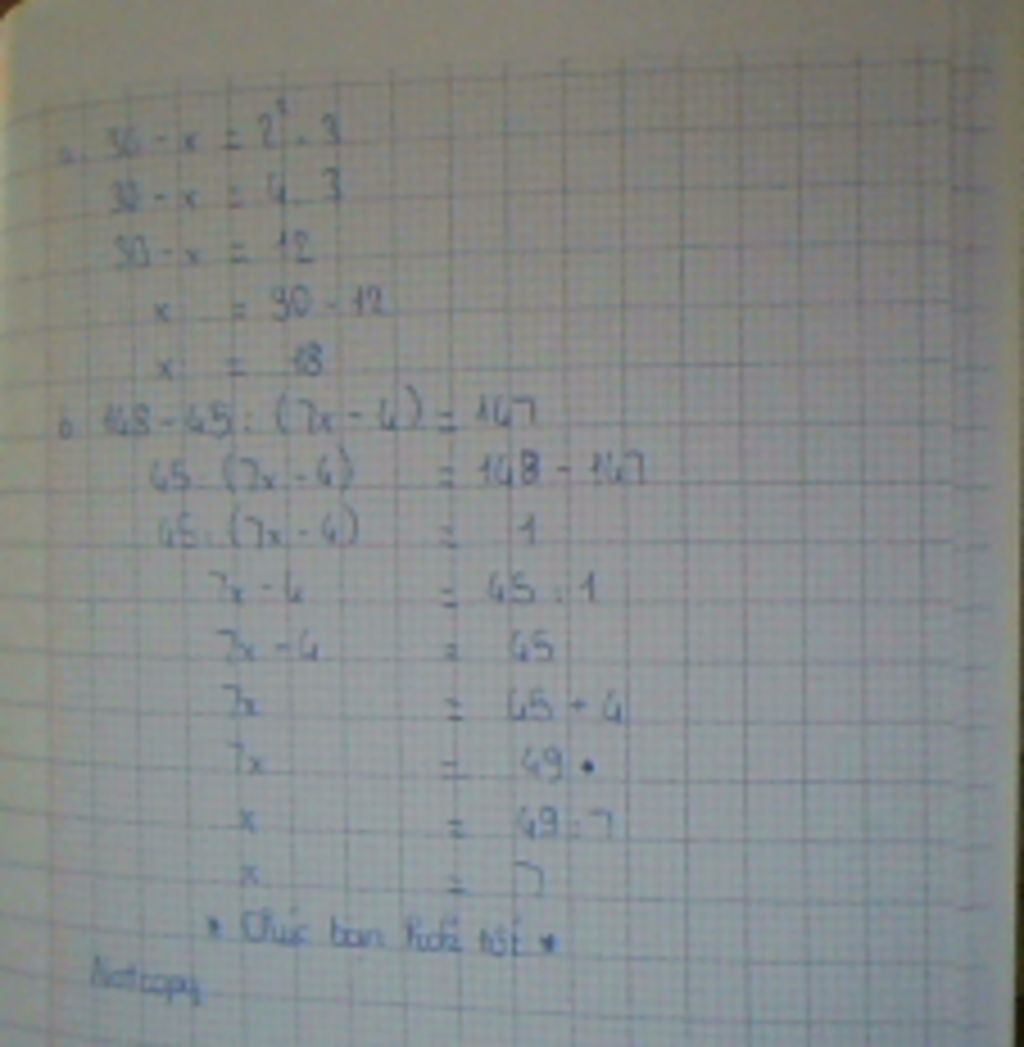 a. 30 - x = 2² . 3
30 - x = 4 . 3
30 - x = 12
x = 30 - 12
x = 18
b. 148 - 45 : (7x - 4) = 147
45 : (7x - 4) = 148 - 147
45 : (7x - 4) = 1
7x - 4 = 45 : 1
7x - 4 = 45
7x = 45 + 4
7x = 49 •
x = 49 : 7
x = 7
* Chúc bạn tốt *
Notcopy